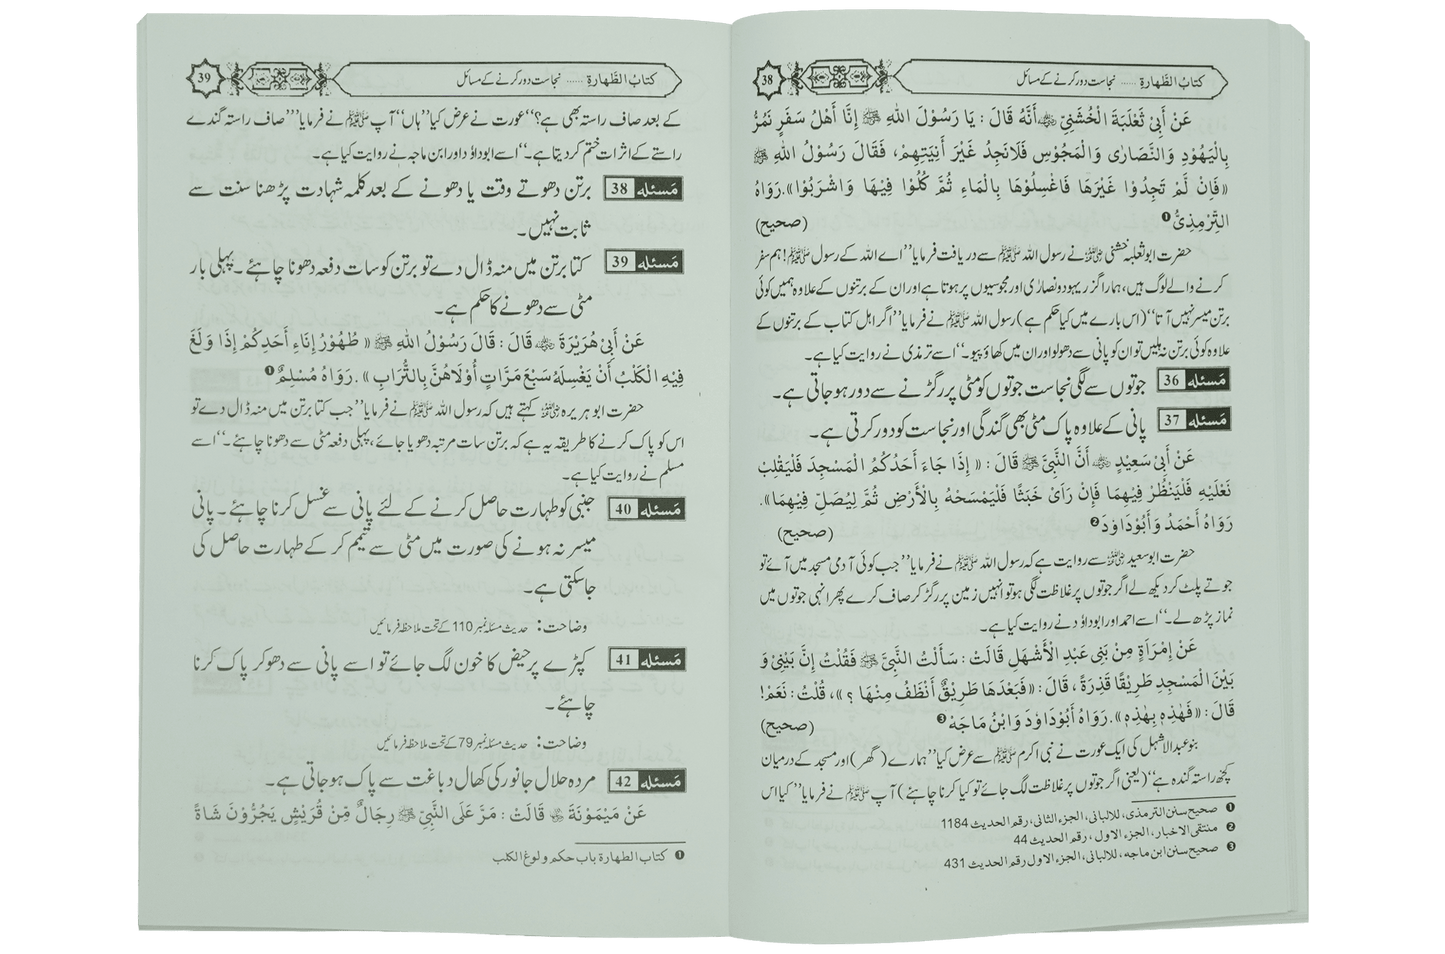 38
کتابُ الطّہارۃِ ...... نجاست دور کرنے کے مسائل
عَنْ أَبِیْ ثَعْلَبَةَ الْخُشَنِیِّ ﷜ أَنَّهُ قَالَ : یَا رَسُوْلَ اللّٰهِ ﷺ إِنَّا أَهْلُ سَفَرٍ نَمُرُّ
بِالْیَهُوْدِ وَالنَّصَارٰی وَالْمَجُوْسِ فَلَانَجِدُ غَیْرَ أٰنِیَتِهِمْ، فَقَالَ رَسُوْلُ اللّٰهِ ﷺ
«فَإِنْ لَّمْ تَجِدُوْا غَیْرَهَا فَاغْسِلُوْهَا بِالْمَاءِ ثُمَّ کُلُوْا فِیْهَا وَاشْرَبُوْا».رَوَاهُ
التِّرْمِذِیُّ❶ (صحیح)
حضرت ابوثعلبہ خشنی ﷜ نے رسول اللہ ﷺ سے دریافت فرمایا”اے اللہ کے رسول ﷺ! ہم سفر
کرنے والے لوگ ہیں، ہمارا گزر یہود و نصاریٰ اور مجوسیوں پر ہوتا ہے اور ان کے برتنوں کے علاوہ ہمیں کوئی
برتن میسر نہیں آتا“(اس بارے میں کیا حکم ہے) رسول اللہ ﷺ نے فرمایا”اگر اہل کتاب کے برتنوں کے
علاوہ کوئی برتن نہ ملیں تو ان کو پانی سے دھو لو اور ان میں کھاؤ پیو۔“اسے ترمذی نے روایت کیا ہے۔
مسئلہ 36 جوتوں سے لگی نجاست جوتوں کو مٹی پر رگڑنے سے دور ہو جاتی ہے۔
مسئلہ 37 پانی کے علاوہ پاک مٹی بھی گندگی اور نجاست کو دور کرتی ہے۔
عَنْ أَبِیْ سَعِیْدٍ ﷜ أَنَّ النَّبِیَّ ﷺ قَالَ : « إِذَا جَاءَ أَحَدُکُمُ الْمَسْجِدَ فَلْیَقْلِبْ
نَعْلَیْهِ فَلْیَنْظُرْ فِیْهِمَا فَإِنْ رَأیٰ خَبَثًا فَلْیَمْسَحْهُ بِالْأَرْضِ ثُمَّ لِیُصَلِّ فِیْهِمَا».
رَوَاهُ أَحْمَدُ وَأَبُوْدَاوٗدَ❷ (صحیح)
حضرت ابو سعید ﷜ سے روایت ہے کہ رسول اللہ ﷺ نے فرمایا”جب کوئی آدمی مسجد میں آئے تو
جوتے پلٹ کر دیکھ لے اگر جوتوں پر غلاظت لگی ہو تو انہیں زمین پر رگڑ کر صاف کرے پھر انہی جوتوں میں
نماز پڑھ لے۔“اسے احمد اور ابوداؤد نے روایت کیا ہے۔
عَنْ إِمْرَأَةٍ مِنْ بَنِی عَبْدِ الْأَشْهَلِ قَالَتْ : سَأَلْتُ النَّبِیَّ ﷺ فَقُلْتُ إِنَّ بَیْنِیْ وَ
بَیْنَ الْمَسْجِدِ طَرِیْقًا قَذِرَةً ، قَالَ : «فَبَعْدَهَا طَرِیْقٌ أَنْظَفُ مِنْهَا ؟ »، قُلْتُ : نَعَمْ!
قَالَ : «فَهٰذِهٖ بِهٰذِهٖ».رَوَاهُ أَبُوْدَاوٗدَ وَابْنُ مَاجَهْ❸ (صحیح)
بنو عبد الاشہل کی ایک عورت نے نبی اکرم ﷺ سے عرض کیا”ہمارے (گھر) اور مسجد کے درمیان
کچھ راستہ گندہ ہے“(یعنی اگر جوتوں پر غلاظت لگ جائے تو کیا کرنا چاہئے) آپ ﷺ نے فرمایا”کیا اس
❶ صحیح سنن الترمذی، للالبانی، الجزء الثانی، رقم الحدیث 1184
❷ منتقی الاخبار، الجزء الاول ، رقم الحدیث 44
❸ صحیح سنن ابن ماجه ، للالبانی، الجزء الاول رقم الحدیث 431
39
کتابُ الطّہارۃِ ...... نجاست دور کرنے کے مسائل
کے بعد صاف راستہ بھی ہے؟“عورت نے عرض کیا”ہاں“آپ ﷺ نے فرمایا”صاف راستہ گندے
راستے کے اثرات ختم کر دیتا ہے۔“اسے ابوداؤد اور ابن ماجہ نے روایت کیا ہے۔
مسئلہ 38 برتن دھوتے وقت یا دھونے کے بعد کلمہ شہادت پڑھنا سنت سے
ثابت نہیں۔
مسئلہ 39 کتا برتن میں منہ ڈال دے تو برتن کو سات دفعہ دھونا چاہئے۔ پہلی بار
مٹی سے دھونے کا حکم ہے۔
عَنْ أَبِیْ هُرَیْرَةَ ﷜ قَالَ : قَالَ رَسُوْلُ اللّٰهِ ﷺ « طُهُوْرُ إِنَاءِ أَحَدِکُمْ إِذَا وَلَغَ
فِیْهِ الْکَلْبُ أَنْ یَغْسِلَهُ سَبْعَ مَرَّاتٍ أُوْلَاهُنَّ بِالتُّرَابِ » .رَوَاهُ مُسْلِمٌ❶
حضرت ابو ہریرہ ﷜ کہتے ہیں کہ رسول اللہ ﷺ نے فرمایا”جب کتا برتن میں منہ ڈال دے تو
اس کو پاک کرنے کا طریقہ یہ ہے کہ برتن سات مرتبہ دھویا جائے، پہلی دفعہ مٹی سے دھونا چاہئے۔“اسے
مسلم نے روایت کیا ہے۔
مسئلہ 40 جنبی کو طہارت حاصل کرنے کے لئے پانی سے غسل کرنا چاہئے۔ پانی
میسر نہ ہونے کی صورت میں مٹی سے تیمم کر کے طہارت حاصل کی
جاسکتی ہے۔
وضاحت: حدیث مسئلہ نمبر 110 کے تحت ملاحظہ فرمائیں
مسئلہ 41 کپڑے پر حیض کا خون لگ جائے تو اسے پانی سے دھو کر پاک کرنا
چاہئے۔
وضاحت: حدیث مسئلہ نمبر 79 کے تحت ملاحظہ فرمائیں
مسئلہ 42 مردہ حلال جانور کی کھال دباغت سے پاک ہو جاتی ہے۔
عَنْ مَیْمُوْنَةَ قَالَتْ : مَرَّ عَلَی النَّبِیِّ ﷺ رِجَالٌ مِّنْ قُرَیْشٍ یَجُرُّوْنَ شَاةً
❶ کتاب الطهارة باب حکم ولوغ الکلب